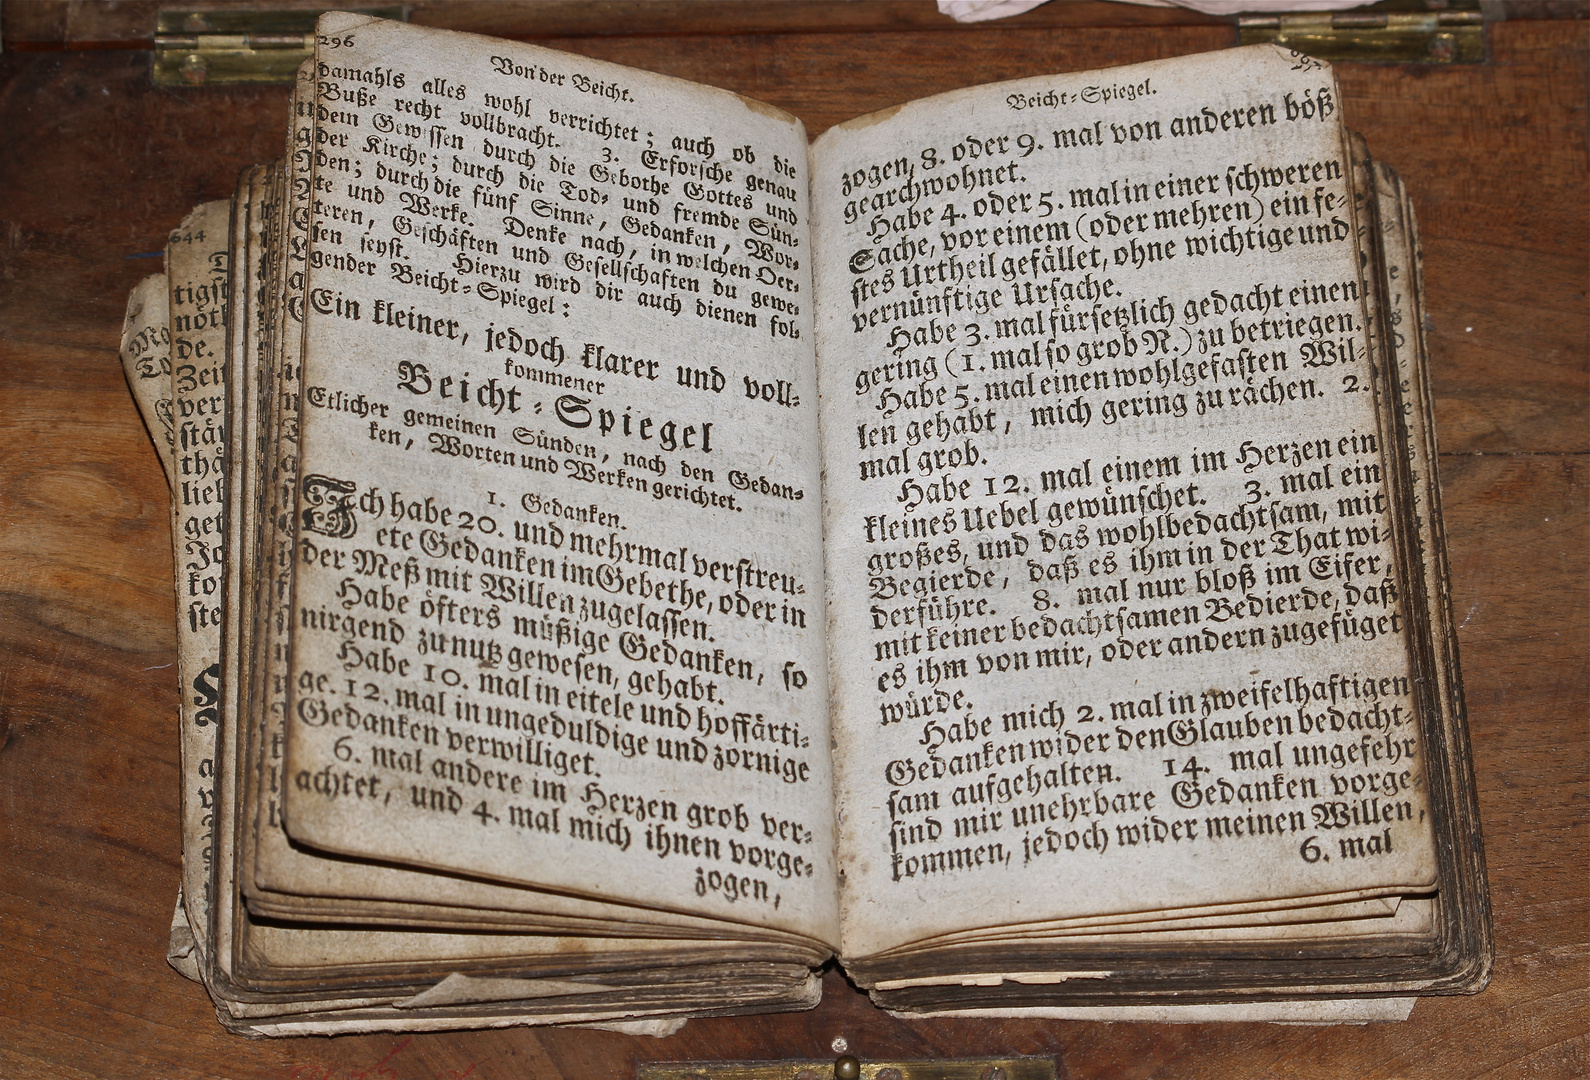 296
Von der Beicht.
damahls alles wohl verrichtet; auch ob die
Buße recht vollbracht. 3. Erforsche genau
dein Gewissen durch die Gebothe Gottes und
der Kirche; durch die Tod- und fremde Sün-
den; durch die fünf Sinne, Gedanken, Wor-
te und Werke. Denke nach, in welchen Oer-
teren, Geschäften und Gesellschaften du gewe-
sen seyst. Hierzu wird dir auch dienen fol-
gender Beicht-Spiegel:
Ein kleiner, jedoch klarer und voll-
kommener
Beicht-Spiegel
Etlicher gemeinen Sünden, nach den Gedan-
ken, Worten und Werken gerichtet.
1. Gedanken.
Ich habe 20. und mehrmal verstreu-
ete Gedanken im Gebethe, oder in
der Meß mit Willen zugelassen.
Habe öfters müßige Gedanken, so
nirgend zu nutz gewesen, gehabt.
Habe 10. mal in eitele und hoffärti-
ge. 12. mal in ungeduldige und zornige
Gedanken verwilliget.
6. mal andere im Herzen grob ver-
achtet, und 4. mal mich ihnen vorge-
zogen,
Beicht-Spiegel.
zogen, 8. oder 9. mal von anderen böß
gearchwohnet.
Habe 4. oder 5. mal in einer schweren
Sache, vor einem (oder mehren) ein fe-
stes Urtheil gefället, ohne wichtige und
vernünftige Ursache.
Habe 3. mal fürsetzlich gedacht einen
gering (1. mal so grob N.) zu betriegen.
Habe 5. mal einen wohlgefasten Wil-
len gehabt, mich gering zu rächen. 2.
mal grob.
Habe 12. mal einem im Herzen ein
kleines Uebel gewünschet. 3. mal ein
großes, und das wohlbedachtsam, mit
Begierde, daß es ihm in der That wi-
derführe. 8. mal nur bloß im Eifer,
mit keiner bedachtsamen Bedierde, daß
es ihm von mir, oder andern zugefüget
würde.
Habe mich 2. mal in zweifelhaftigen
Gedanken wider den Glauben bedacht-
sam aufgehalten. 14. mal ungefehr
sind mir unehrbare Gedanken vorge-
kommen, jedoch wider meinen Willen,
6. mal
644
tigst
nötl
de.
Zeit
ver
stär
thä
lieb
get
Jo
ko
ste